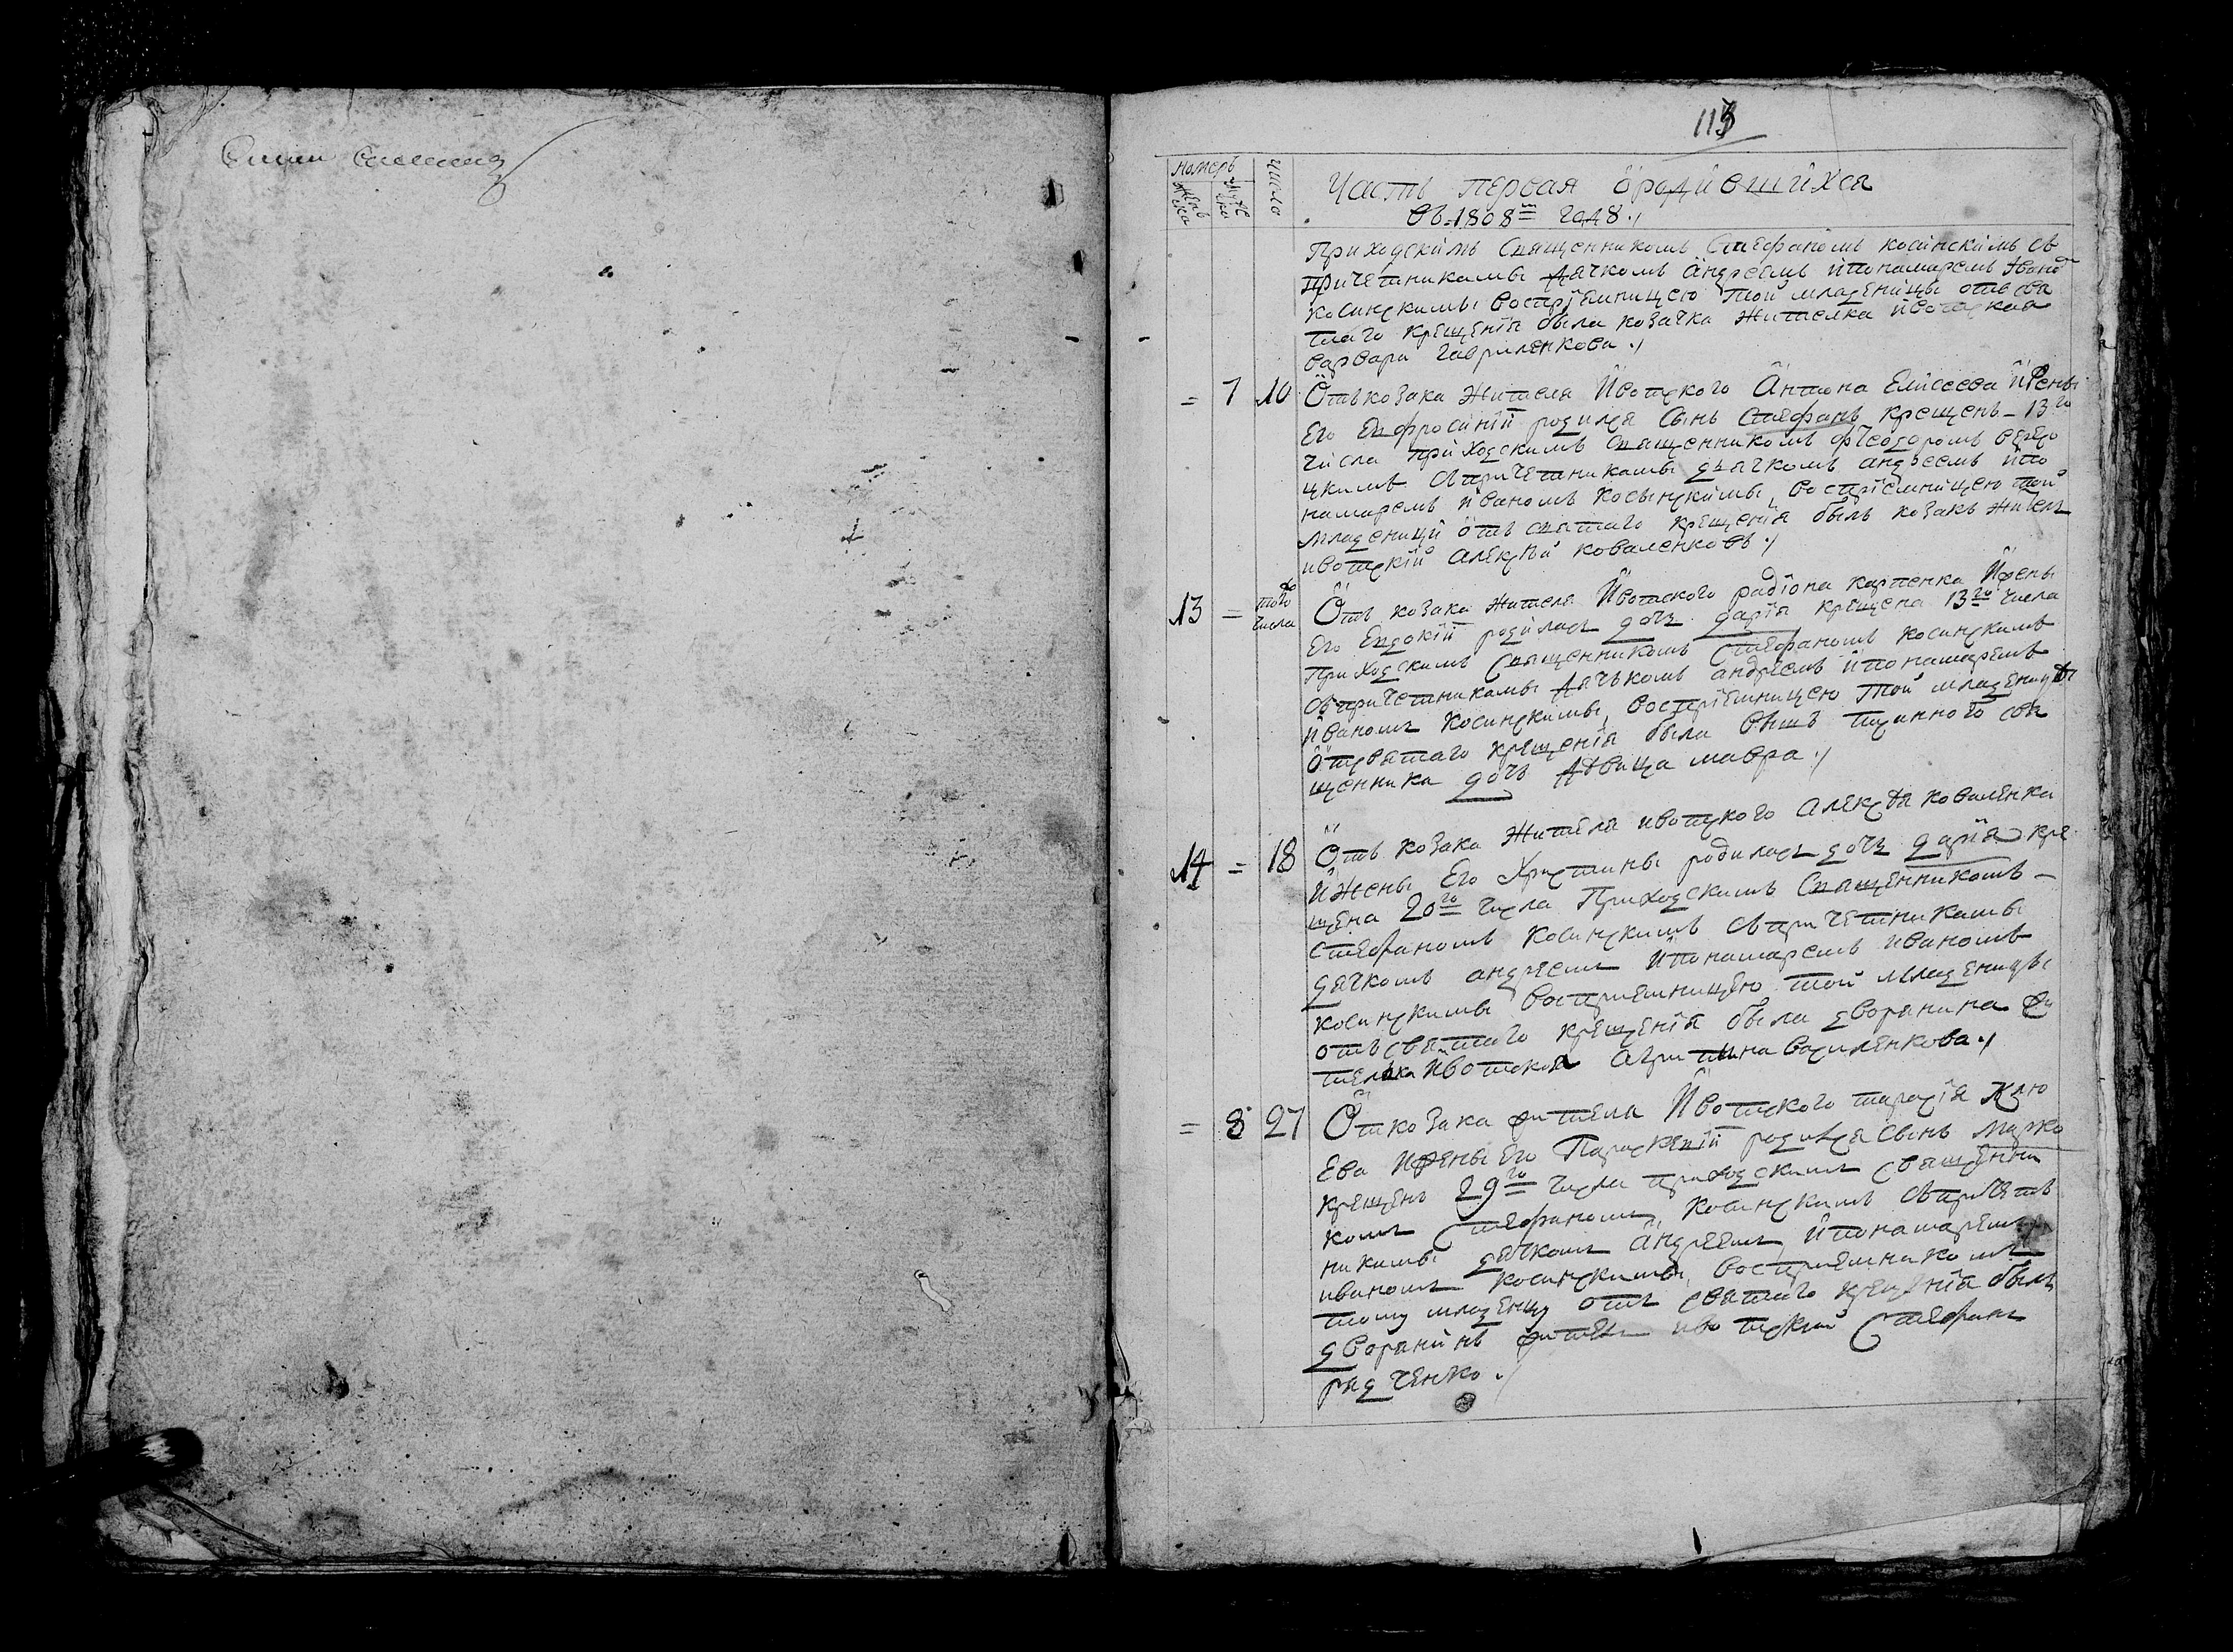 113
номеръ
число
женска
мужска
Часть первая ѿ родившихся
въ 1808м году
Приходскимъ Священникомъ Стефаномъ косинскимъ съ
причетниками Дячкомъ Андреемъ и понамаремъ Иваном
косинскимы воспріемницею той младеницы отъ свя
таго крещенія была козачка жителка ивотская
варвара Гавриленкова
= 7 10 Отъ козака Жителя Ивотского Антона Елисеева и Жены
Его Евфросиніи родился Сынъ Стефанъ крещенъ 13го
числа приходскимъ священникомъ Феодоромъ
цкимъ съ причетниками дячкомъ андреемъ и по
намаремъ иваномъ косинскимы, воспріемницею той
младеници отъ святаго крещенія былъ козакъ житель
ивотскій алексѣй коваленковъ
13 = того числа Отъ козака жителя Ивотского радіона карпенка И жены
Его Евдокіи родилась дочъ дарія крещена 13го числа
приходскимъ Священникомъ Стефаномъ косинскимъ
съ причетниками дячъкомъ андреемъ и понамаремъ
иваномъ косинскимы, воспріемницею той младеницѣ
отсвятаго крещенія была свя
щенника дочъ дѣвица мавра
14 = 18 Отъ козака жителя ивотского алексѣя коваленка
и жены Его Христины родилась дочъ дарія кре
щена 20го числа Приходскимъ Священникомъ
стефаномъ косинскимъ съ причетниками
дячкомъ андреемъ и понамаремъ иваномъ
косинскимы воспріемницею той младеницы
отъ святаго крещенія была дворянина жи
телька ивотская Василенкова
= 8 27 От козака жителя Ивотского тарасія Клю
Ева и жены Его Параскевіи родился сынъ Марко
крещенъ 29го числа приходскимъ священни
комъ Стефаномъ косинскимъ съ причет
никамы дячкомъ Андреемъ и понамаремъ
иваномъ косинскимы, воспріемникомъ
тому младенцу отъ святаго крещенія былъ
дворянинъ житель ивотскій Стефанъ
рядченко